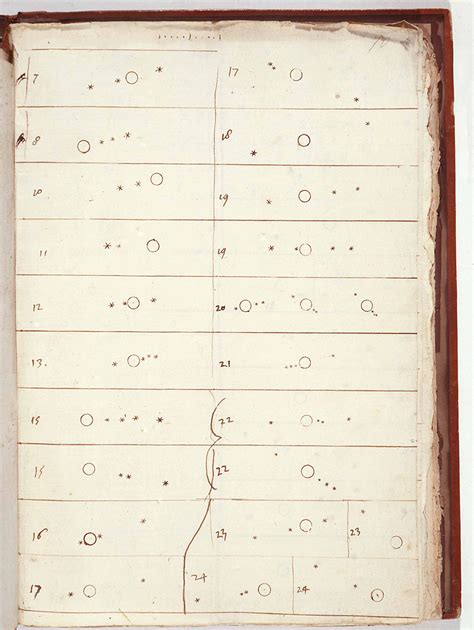 7
8
10
11
12
13.
15
15
16
17
17
18
19
19
20
21
22
22
23 23
24 24